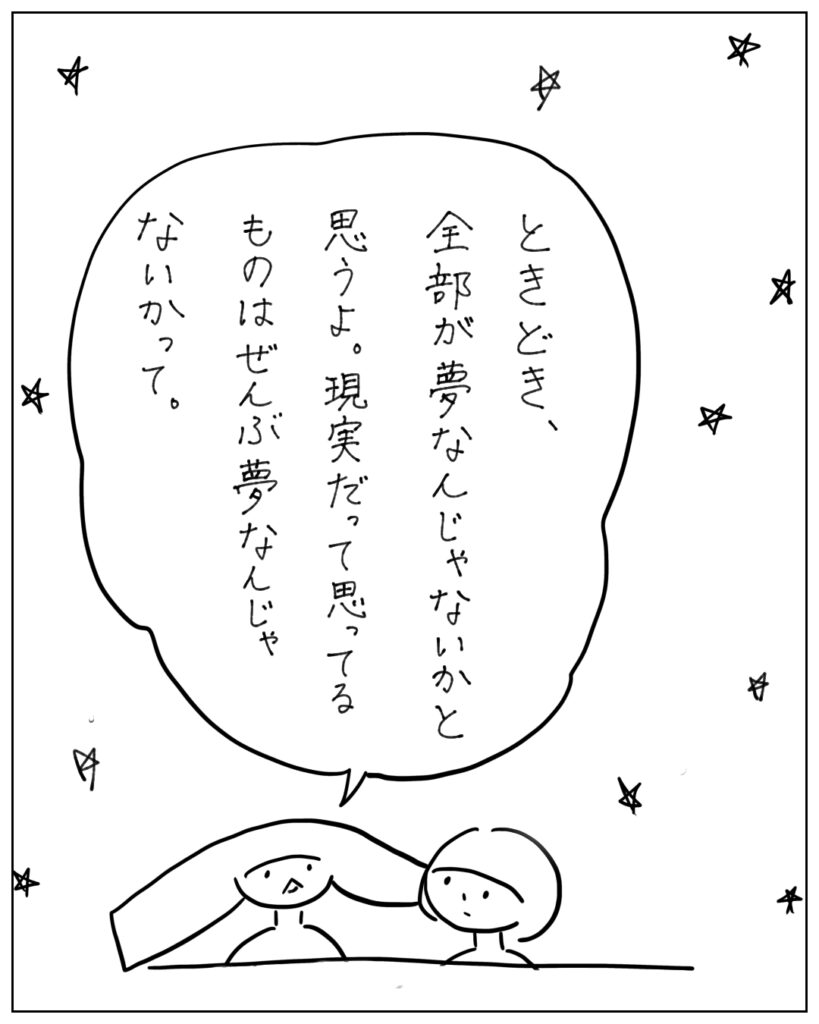 ときどき、
全部が夢なんじゃないかと
思うよ。現実だって思ってる
ものはぜんぶ夢なんじゃ
ないかって。